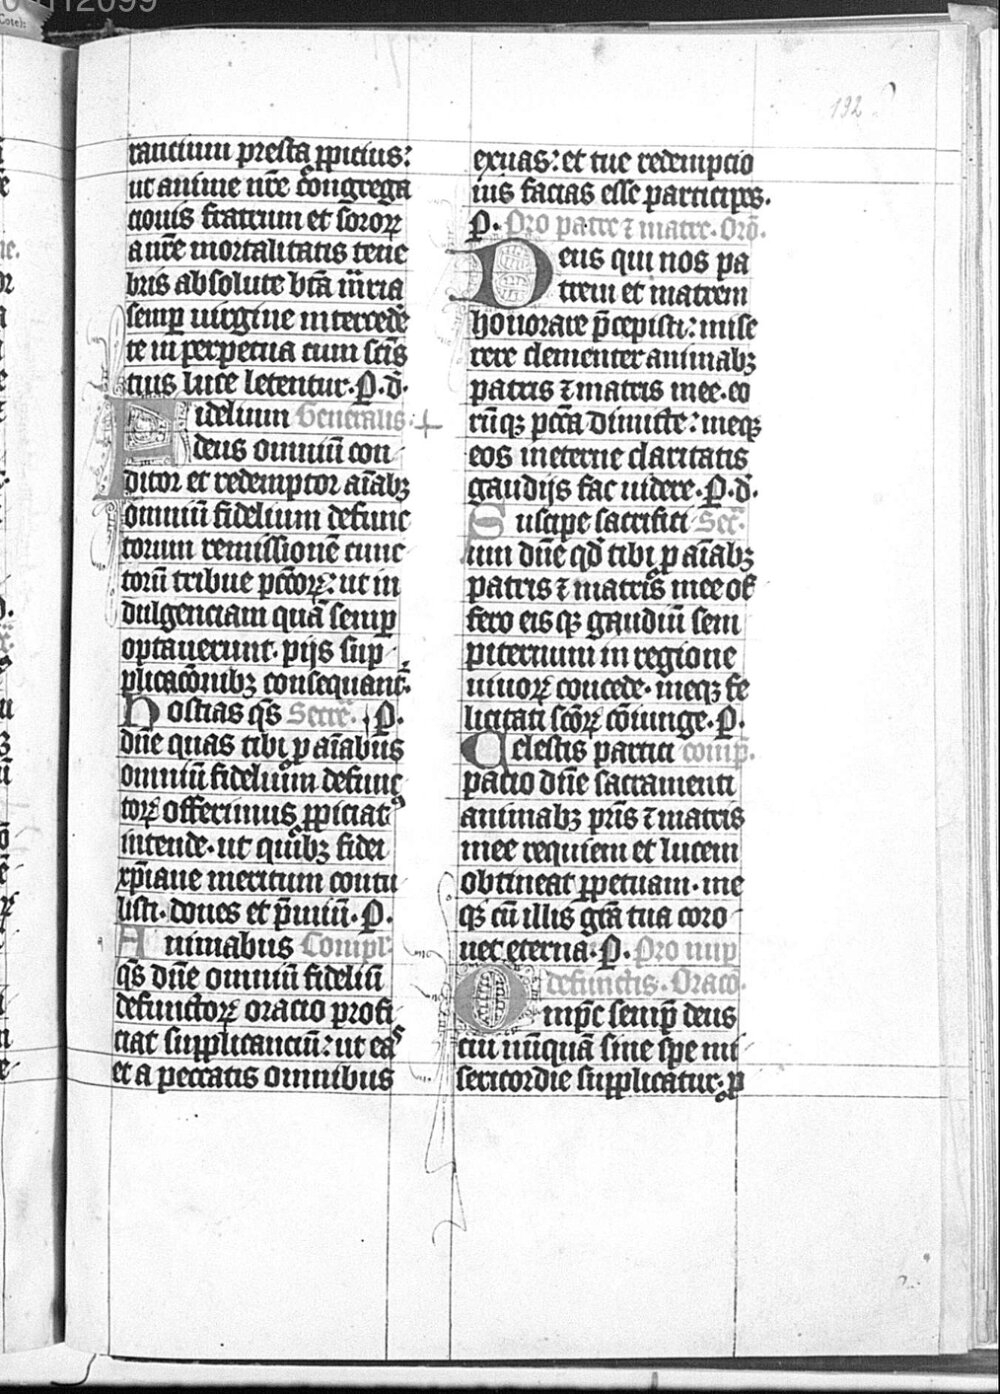 192
tancium presta ꝓpicius:
ut anime nr̃e congrega
cionis fratrum et sororꝝ
a nr̃e mortalitatis tene
bris absolute bt̃a m̃ria
semꝑ uirgine intercedẽ
te in perpetua cum sc̃is
tuis luce letentur. P. d̃.
Fidelium Generalis
deus omniũ con
ditor et redemptor aĩabꝫ
omniũ fidelium defunc
torum remissionẽ cunc
torũ tribue pc̃corꝝ: ut in
dulgenciam quã semꝑ
optauerunt. pijs sup
plicac̃onibꝫ consequant᷑.
Hostias q̃s Secre᷑. P.
dñe quas tibi ꝑ aĩabus
omniũ fidelium defunc
torꝝ offerimus ꝓpiciatꝰ
intende. ut quibꝫ fidei
xp̃iane meritum contu
listi. dones et p̃miũ. P.
Animabus Compl᷑.
q̃s dñe omniũ fideliũ
defunctorꝝ oracio profi
ciat supplicanciũ: ut eas
et a peccatis omnibus
exuas: et tue redempcio
nis facias esse participes.
P. Pro patre ⁊ matre. Orõ.
Deus qui nos pa
trem et matrem
honorare p̃cepisti: mise
rere clementer animabꝫ
patris ⁊ matris mee. eo
rũqꝫ pcc̃a dimitte: meqꝫ
eos in eterne claritatis
gaudijs fac uidere. P. d̃.
Suscipe sacrifici Secr̃.
um dñe qd̃ tibi ꝑ aĩabꝫ
patris ⁊ matris mee of
fero eisqꝫ gaudiũ sem
piternum in regione
uiuorꝝ concede. meqꝫ fe
licitati sc̃orꝝ cõiunge. P.
Celestis partici comp̃.
pacio dñe sacramenti
animabꝫ pr̃is ⁊ matris
mee requiem et lucem
obtineat ꝑpetuam. me
qꝫ cũ illis gr̃a tua coro
net eterna. P. Pro nup
defunctis. Oracõ.
Omp̃c semꝑ deus
cui nũquã sine spe mi
sericordie supplicatur: ꝓ